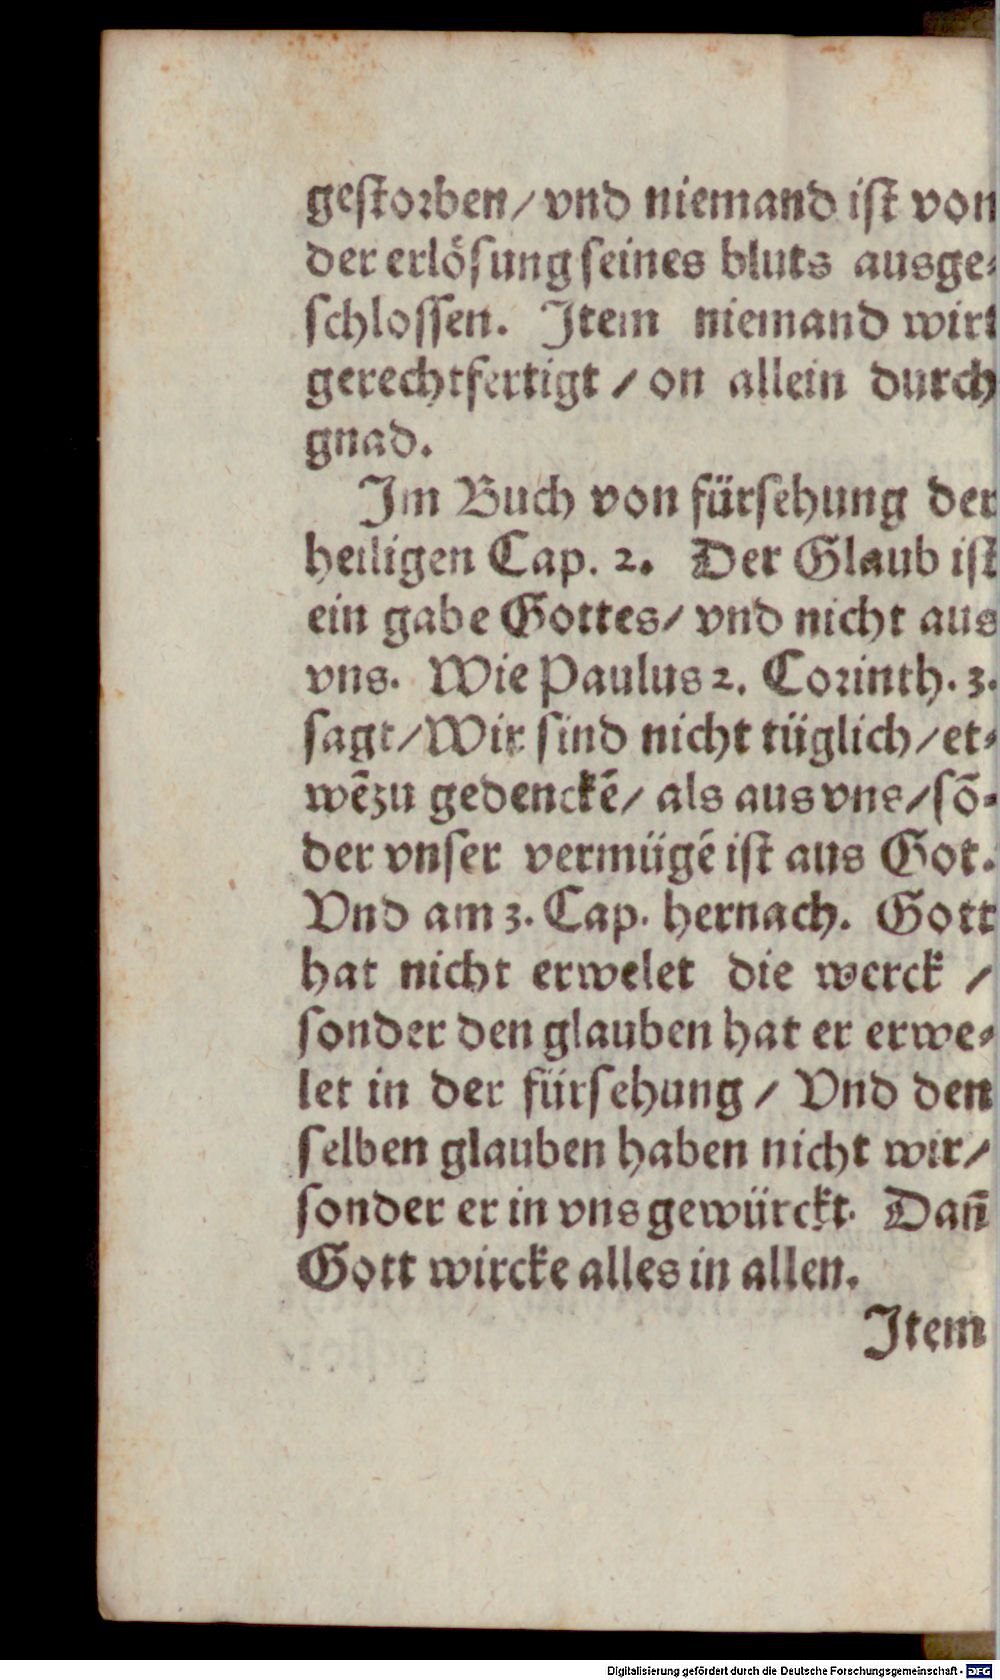 gestorben / vnd niemand ist von
der erlösung seines bluts ausge-
schlossen. Item niemand wirt
gerechtfertigt / on allein durch
gnad.
Im Buch von fürsehung der
heiligen Cap. 2. Der Glaub ist
ein gabe Gottes / vnd nicht aus
vns. Wie Paulus 2. Corinth. 3.
sagt / Wir sind nicht tüglich / et-
wēzu gedenckē / als aus vns / sō-
der vnser vermügē ist aus Got.
Vnd am 3. Cap. hernach. Gott
hat nicht erwelet die werck /
sonder den glauben hat er erwe-
let in der fürsehung / Vnd den
selben glauben haben nicht wir /
sonder er in vns gewürckt. Dan̄
Gott wircke alles in allen.
Item
Digitalisierung gefördert durch die Deutsche Forschungsgemeinschaft - DFG